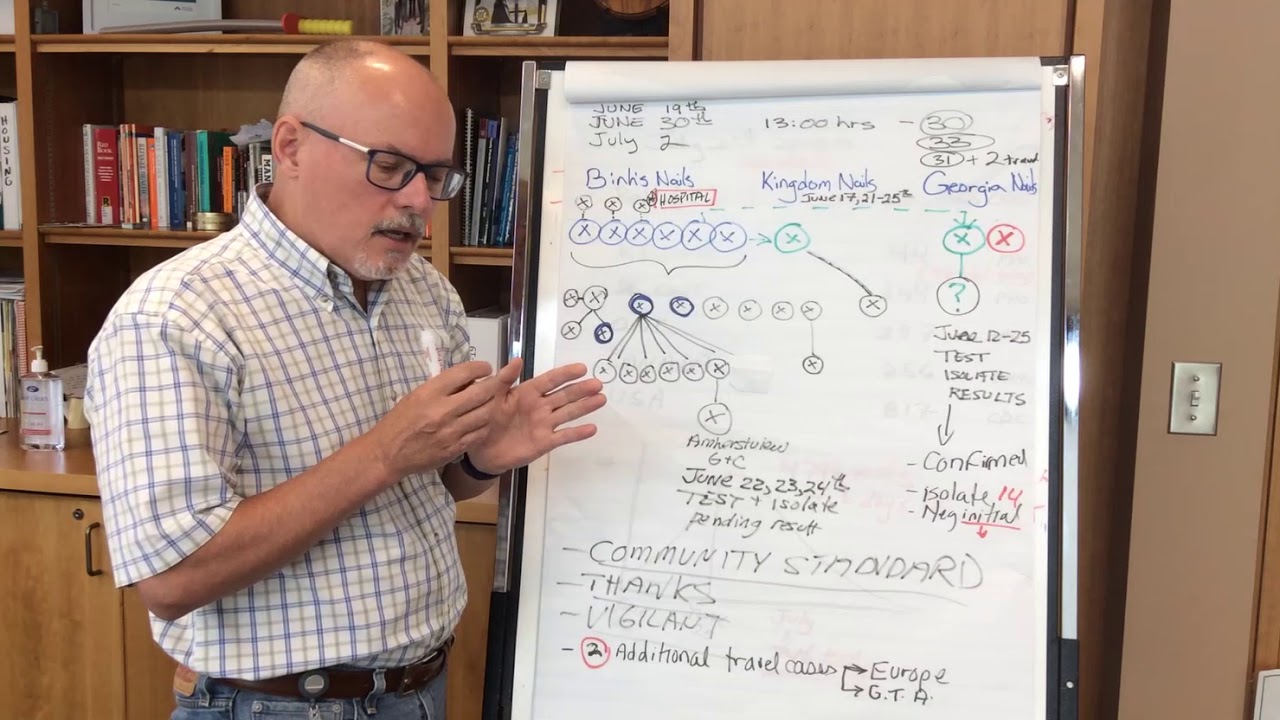 JUNE 19th
JUNE 30th
July 2
13:00 hrs - 30
33
31 + 2 travel
Binh's Nails
Kingdom Nails
June 17, 21-25th
Georgia Nails
HOSPITAL
X X X
X X X X X X → X
X X
X X X X X X X X X
?
X X
X X X X X X X
X
JUNE 12-25
TEST
ISOLATE
RESULTS
- Confirmed
- isolate 14
- Neg initial
Amherstview
G+C
JUNE 22, 23, 24th
TEST + isolate
pending result
- COMMUNITY STANDARD
- THANKS
- VIGILANT
- 2 Additional travel cases → Europe
→ G.T.A.
HOUSING
RED BOOK